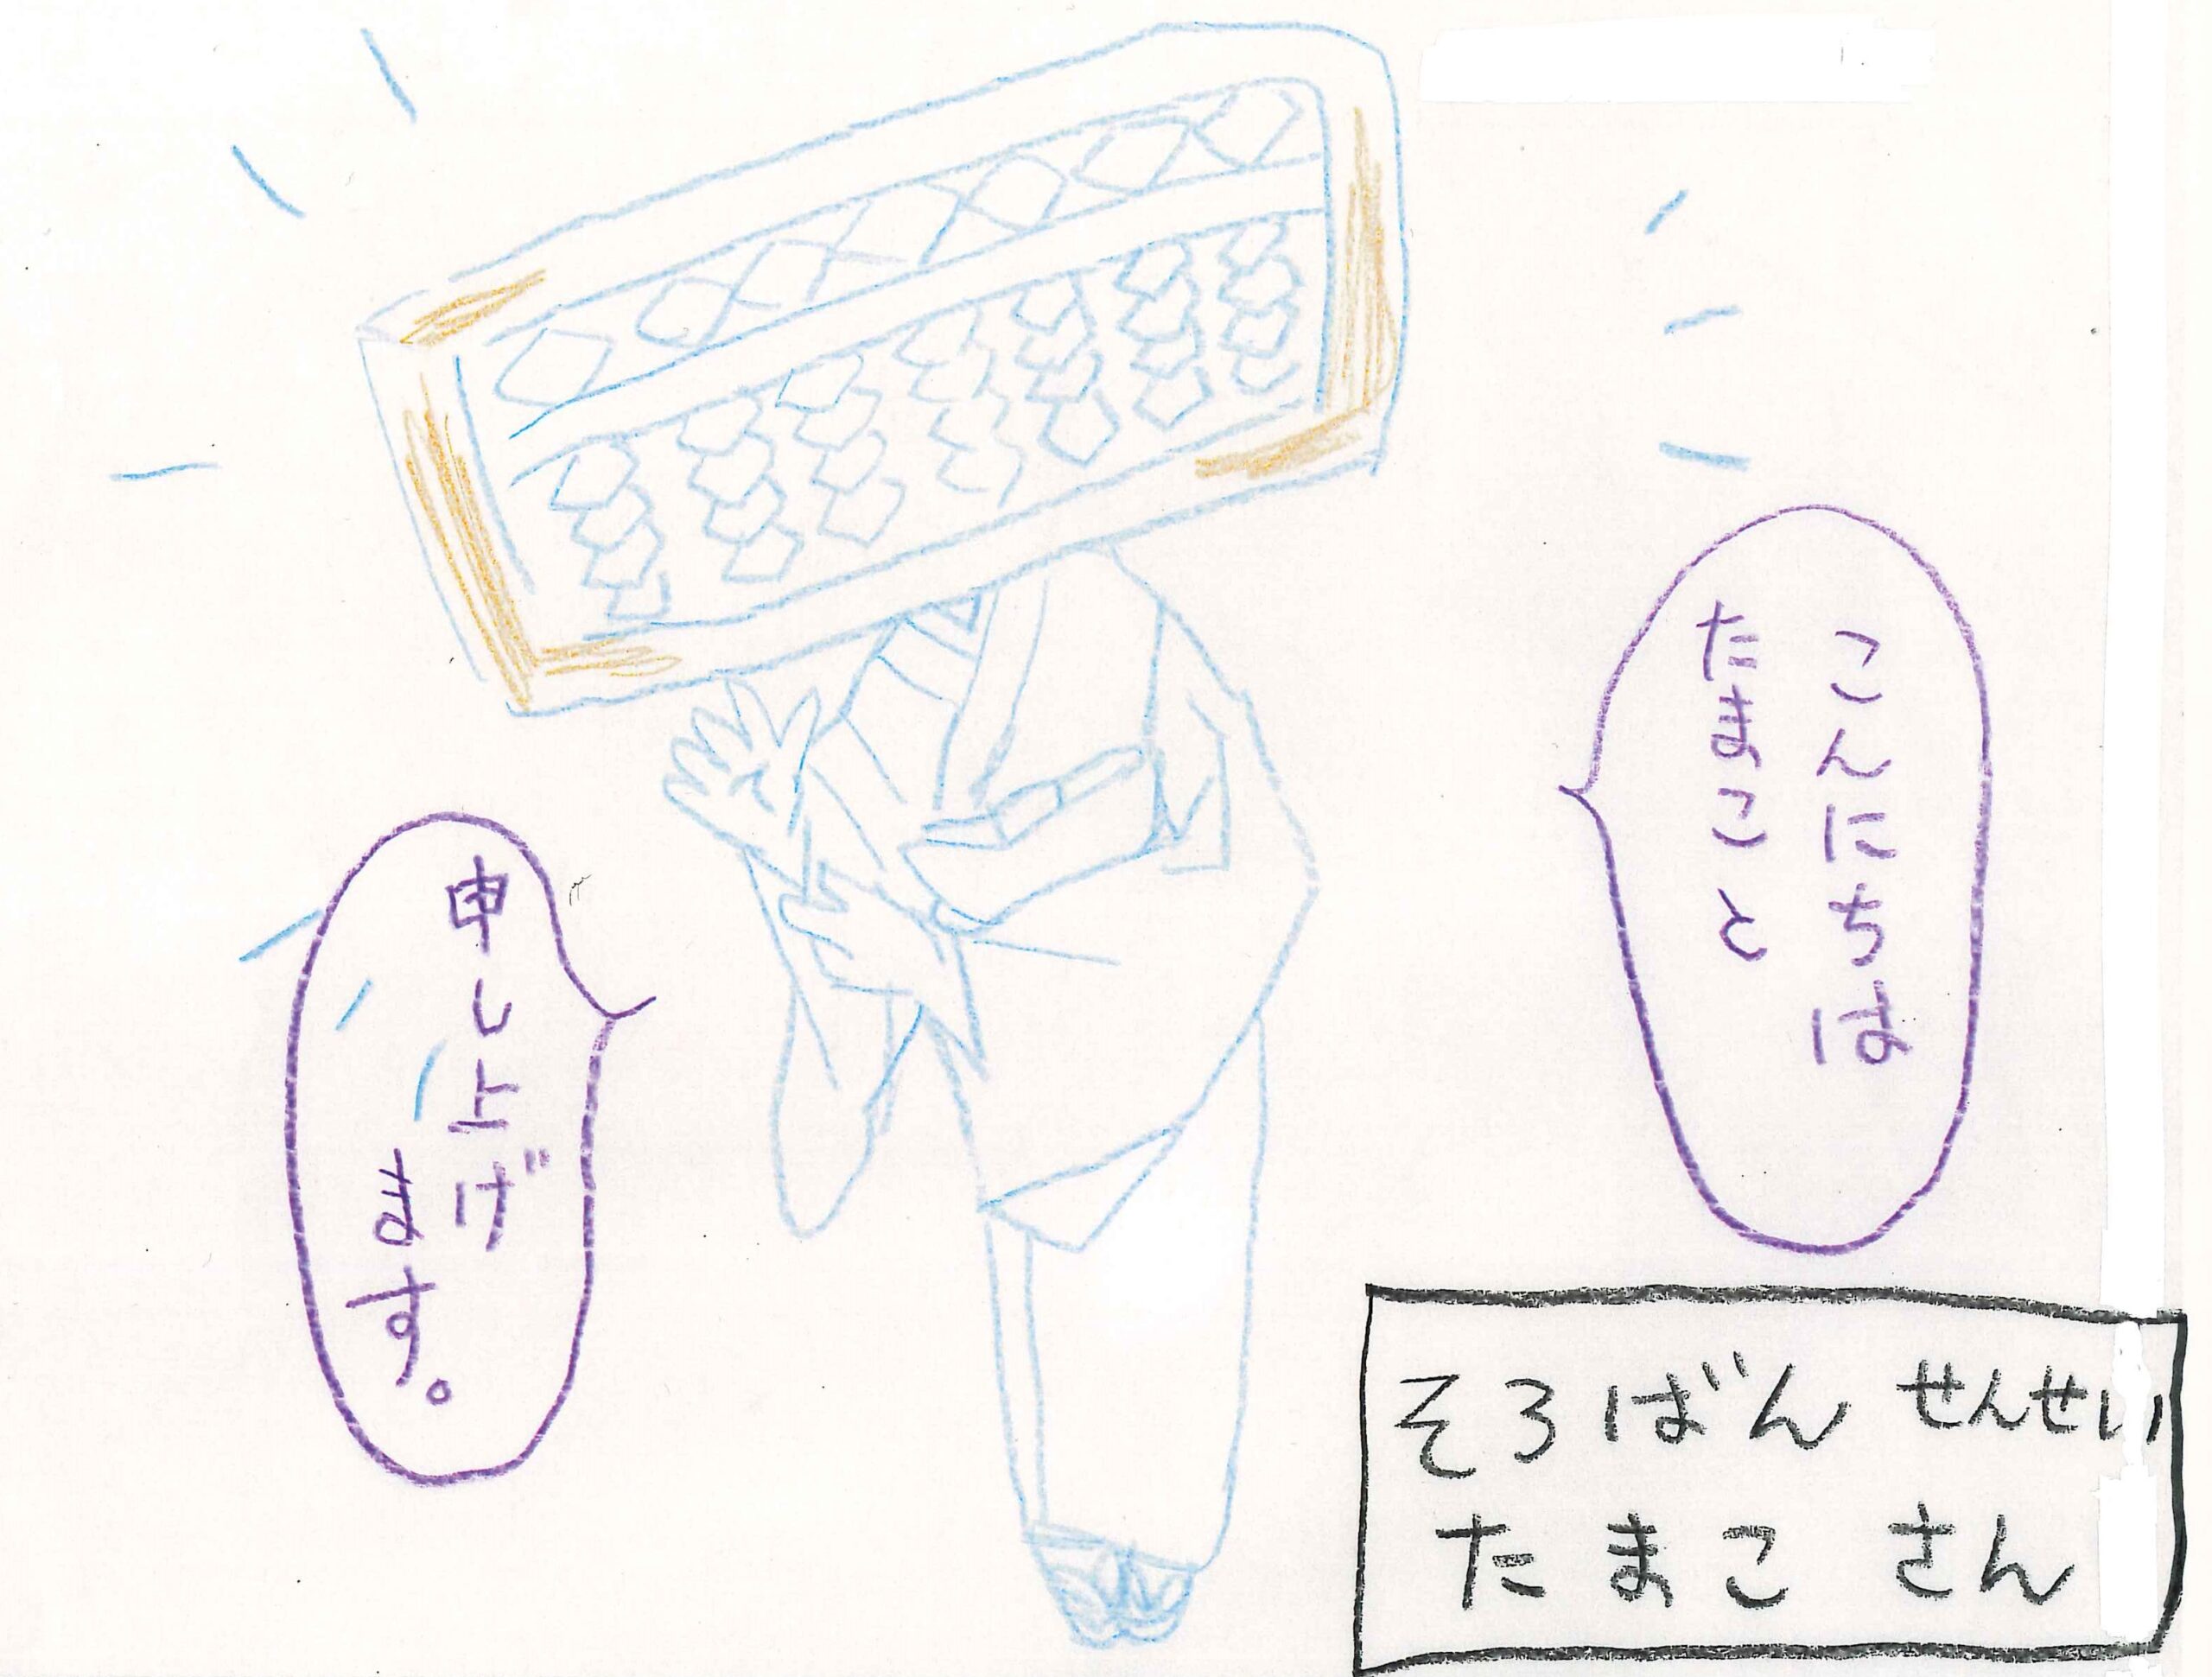 こんにちは
たまこと
申し上げ
ます。
そろばん せんせい
たまこ さん